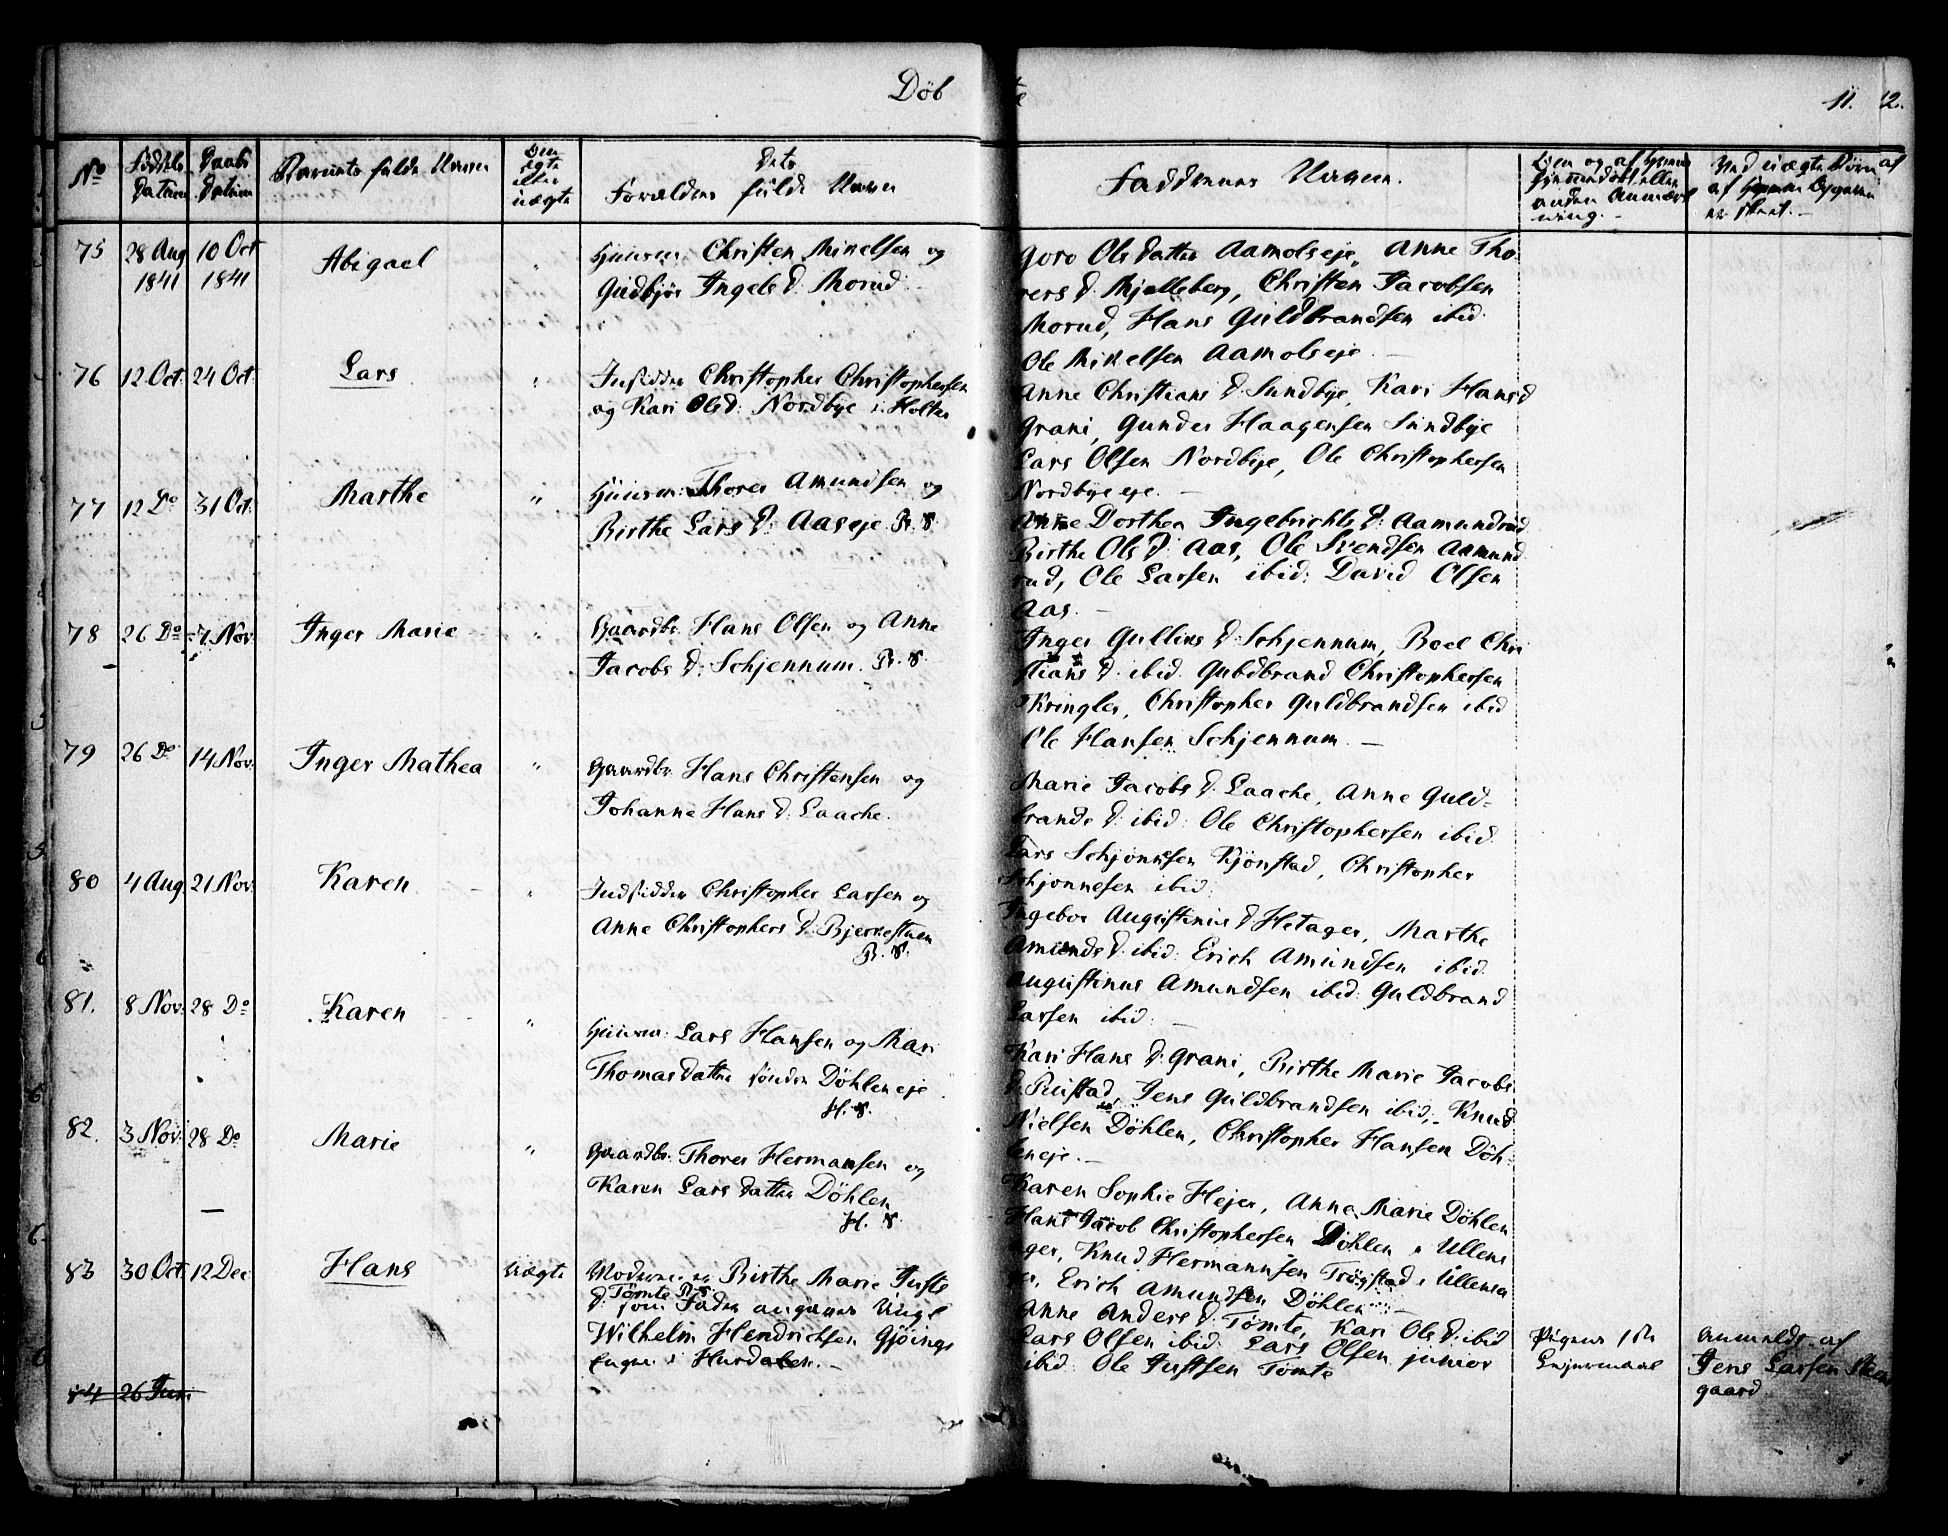 Döb te
11. 12.
No
Fødsels Datum
Daabs Datum
Barnets fulde Navn
Om ægte eller uægte
Dets Forældres fulde Navn
Faddernes Navne.
Ved uægte Børn af
75 28 Aug 1841 10 Oct 1841 Abigael "
Huusm: Christen Mikelsen og
Gudbjør Ingels D. Morud.
Goro Ols datter Aamolseje, Anne Tho
rers D. Mjelleberg, Christen Jacobsen
Morud, Hans Guldbrandsen ibid.
Ole Mikelsen Aamolseje. —
76 12 Oct. 24 Oct. Lars "
Indsidder Christopher Christophersen
og Kari Ols D: Nordbye i Holter
Anne Christians D. Sundbye, Kari Hans D
Grani, Gunder Haagensen Sundbye
Lars Olsen Nordbye, Ole Christophersen
Nordbyeeje. —
77 12 Do 31 Oct. Marthe "
Huusm: Thorer Amundsen og
Birthe Lars D: Aaseje. B. S.
Anne Dorthea Ingebrichts D: Aamundrud
Birthe Ols D. Aas, Ole Svendsen Aamund
rud, Ole Larsen ibid: David Olsen
Aas. —
78 26 Do 7 Nov. Inger Marie "
Gaardbr. Hans Olsen og Anne
Jacobs D: Schjennum. B. S.
Inger Gullius D. Schjennum, Boel Chri
stians D. ibid. Gulbdbrand Christophersen
Kringler, Christopher Guldbrandsen ibid
Ole Hansen Schjennum. —
79 26 Do 14 Nov. Inger Mathea "
Gaardbr. Hans Christensen og
Johanne Hans D: Laache.
Marie Jacobs D. Laache, Anne Guld=
brands D: ibid: Ole Christophersen ibid.
Lars Schjønnesen Kjønstad, Christopher
Schjonnesen ibid.
80 4 Aug 21 Nov. Karen "
Indsidder Christopher Larsen og
Anne Christophers D. Bjerkestuen
B. S.
Ingebor Augustinus D. Hetager, Marthe
Amunds D. ibid: Erich Amundsen ibid.
Augustinus Amundsen ibid: Guldbrand
Larsen ibid. —
81. 8 Nov. 28 Do Karen "
Huusm: Lars Hansen og Mari
Thomasdatter søndre Döhleneje
H. S.
Kari Hans D. Grani, Birthe Marie Jacobs
D. Ruistad, Jens Guldbrandsen ibid:, Knud
Nielsen Döhlen, Christopher Hansen Döh-
leneje. —
82. 3 Nov. 28 Do Marie "
Gaardbr. Thorer Hermansen og
Karen Lars datter Döhlen
H. S.
Karen Sophie Hejer, Anne Marie Döhlen
Hans Jacob Christophersen Döhlen i Ullens
ager, Knud Hermannsen Trögstad i Ullensa
ger, Erich Amundsen Döhlen —
83 30 Oct. 12 Dec Hans Uægte
Moderen er Birthe Marie Juste
D. Tømte B. S. som Fader angives Ungk
Wilhelm Hendrichsen Gjöings
Engen i Hurdalen. —
Anne Anders D. Tömte, Kari Ols D. ibid
Lars Olsen ibid. Lars Olsen junior
ibid. Ole Justsen Tömte
Pigens 1ste
Leiermaal
Anmeldt af
Jens Larsen Steen
gaard
84 26 Juni